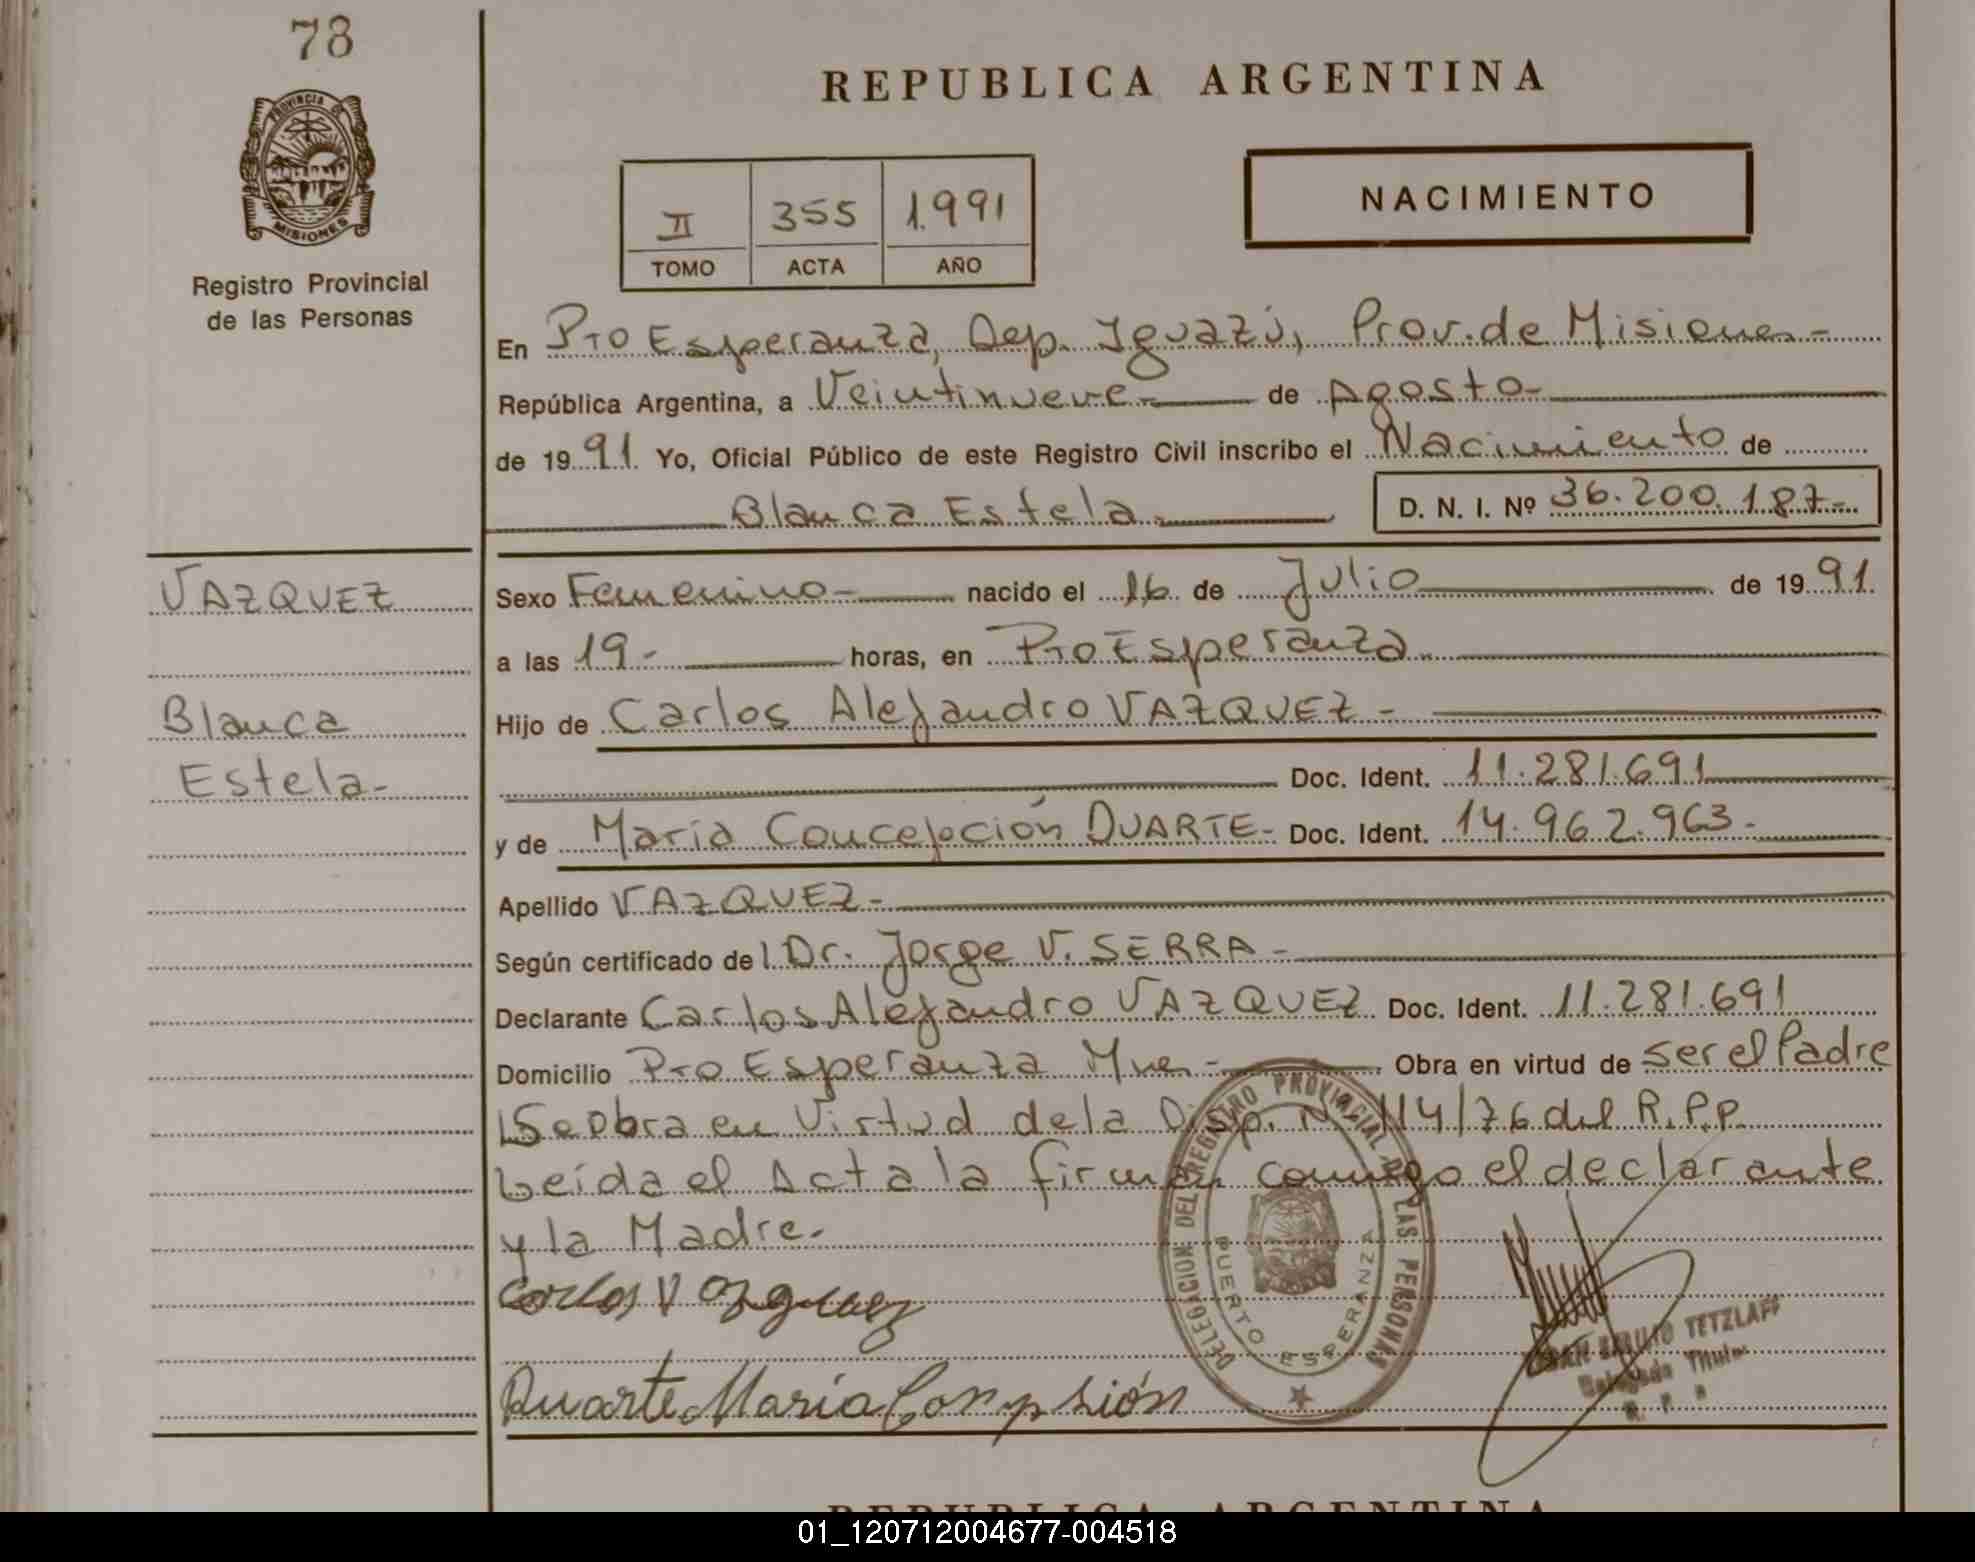 78
PROVINCIA DE
MISIONES
Registro Provincial
de las Personas
REPUBLICA ARGENTINA
II 355 1.991
TOMO ACTA AÑO
NACIMIENTO
En Pto Esperanza, Dep. Iguazú, Prov. de Misiones-
República Argentina, a Veintinueve- de Agosto-
de 1991. Yo, Oficial Público de este Registro Civil inscribo el Nacimiento de
Blanca Estela.
D. N. I. Nº 36.200.187-
VAZQUEZ
Blanca
Estela-
Sexo Femenino- nacido el 16 de Julio de 1991.
a las 19- horas, en Pto Esperanza
Hijo de Carlos Alejandro VAZQUEZ-
Doc. Ident. 11.281.691
y de María Concepción DUARTE- Doc. Ident. 14.962.963-
Apellido VAZQUEZ-
Según certificado del Dr. Jorge V. SERRA-
Declarante Carlos Alejandro VAZQUEZ Doc. Ident. 11.281.691
Domicilio Pto Esperanza Mnes- Obra en virtud de ser el Padre
Se obra en Virtud de la Disp. Nº 114/76 del R.P.P.
Leída el Acta la firman conmigo el declarante
y la Madre.
Carlos Vazquez
Duarte María
DELEGACION DEL REGISTRO PROVINCIAL DE LAS PERSONAS
PUERTO ESPERANZA
EMILIO TETZLAFF
Delegado Titular
R. P. P.
REPUBLICA ARGENTINA
01_120712004677-004518